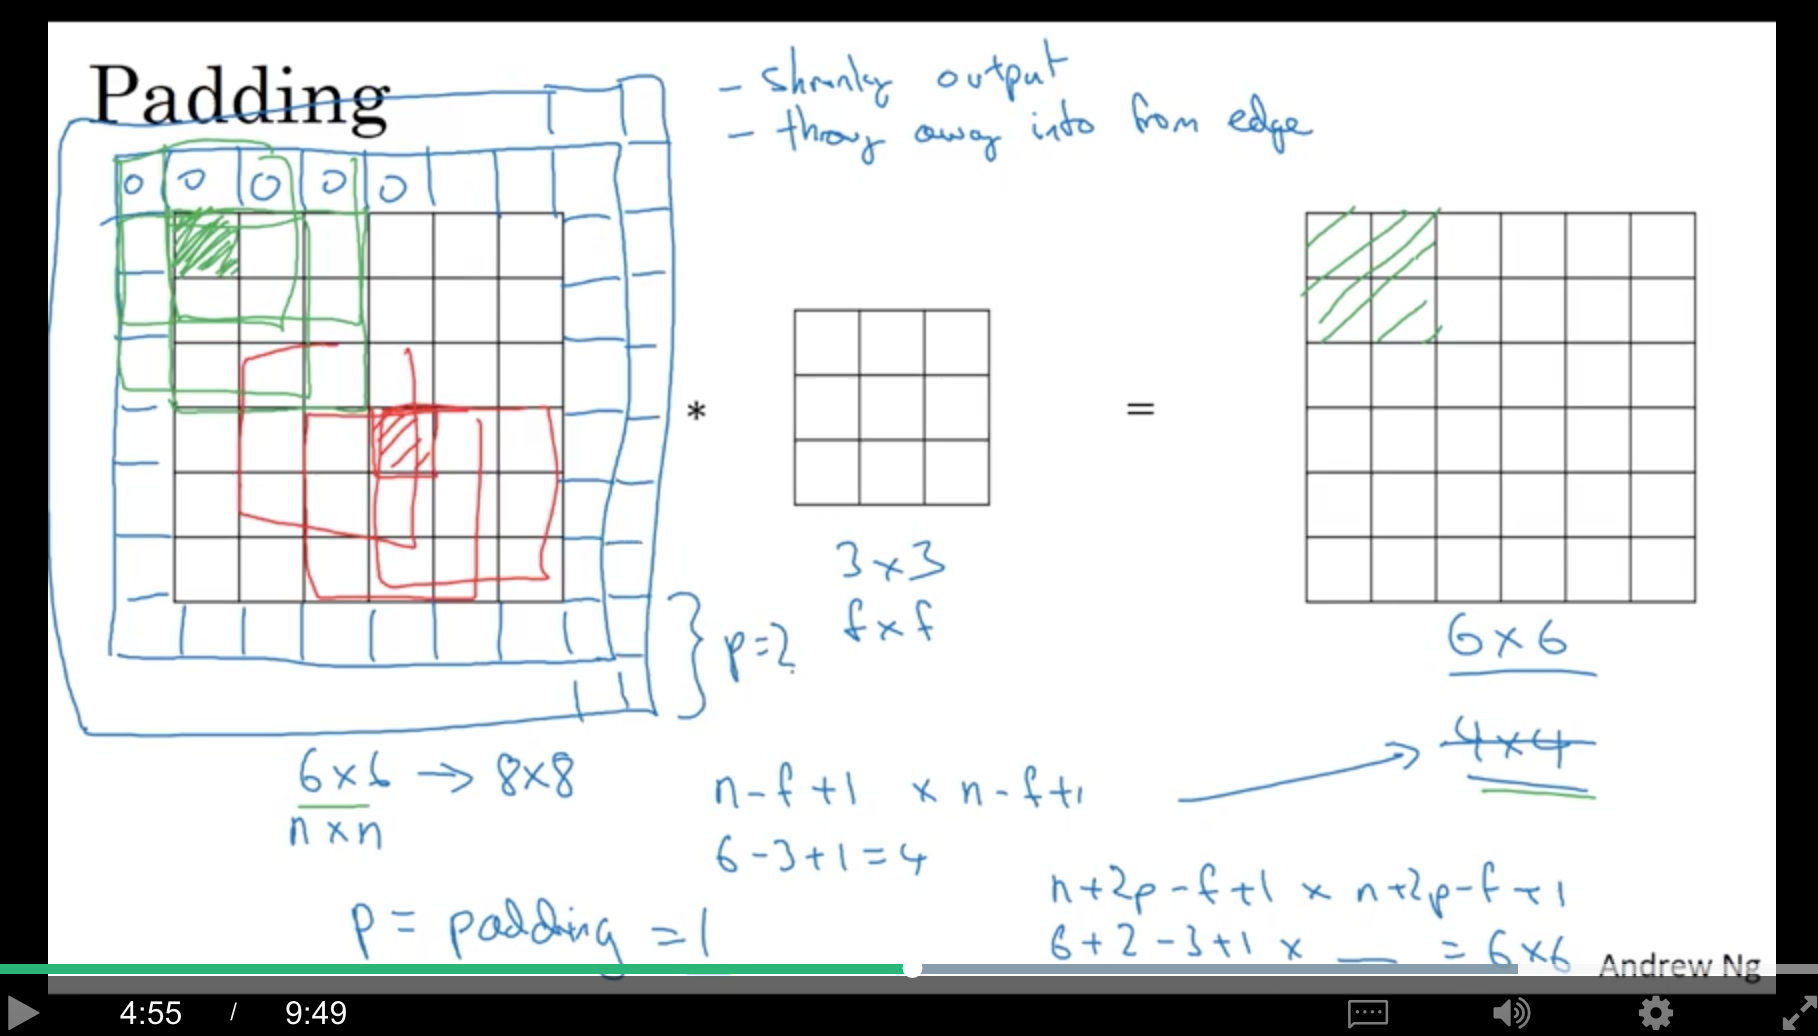 Padding
- shrinky output
- throwy away info from edge
0 0 0 0 0
*
=
3 x 3
f x f
p=2
6 x 6
4 x 4
6 x 6 → 8 x 8
n x n
n - f + 1 x n - f + 1
6 - 3 + 1 = 4
p = padding = 1
n + 2p - f + 1 x n + 2p - f + 1
6 + 2 - 3 + 1 x __ = 6 x 6
Andrew Ng
4:55 / 9:49